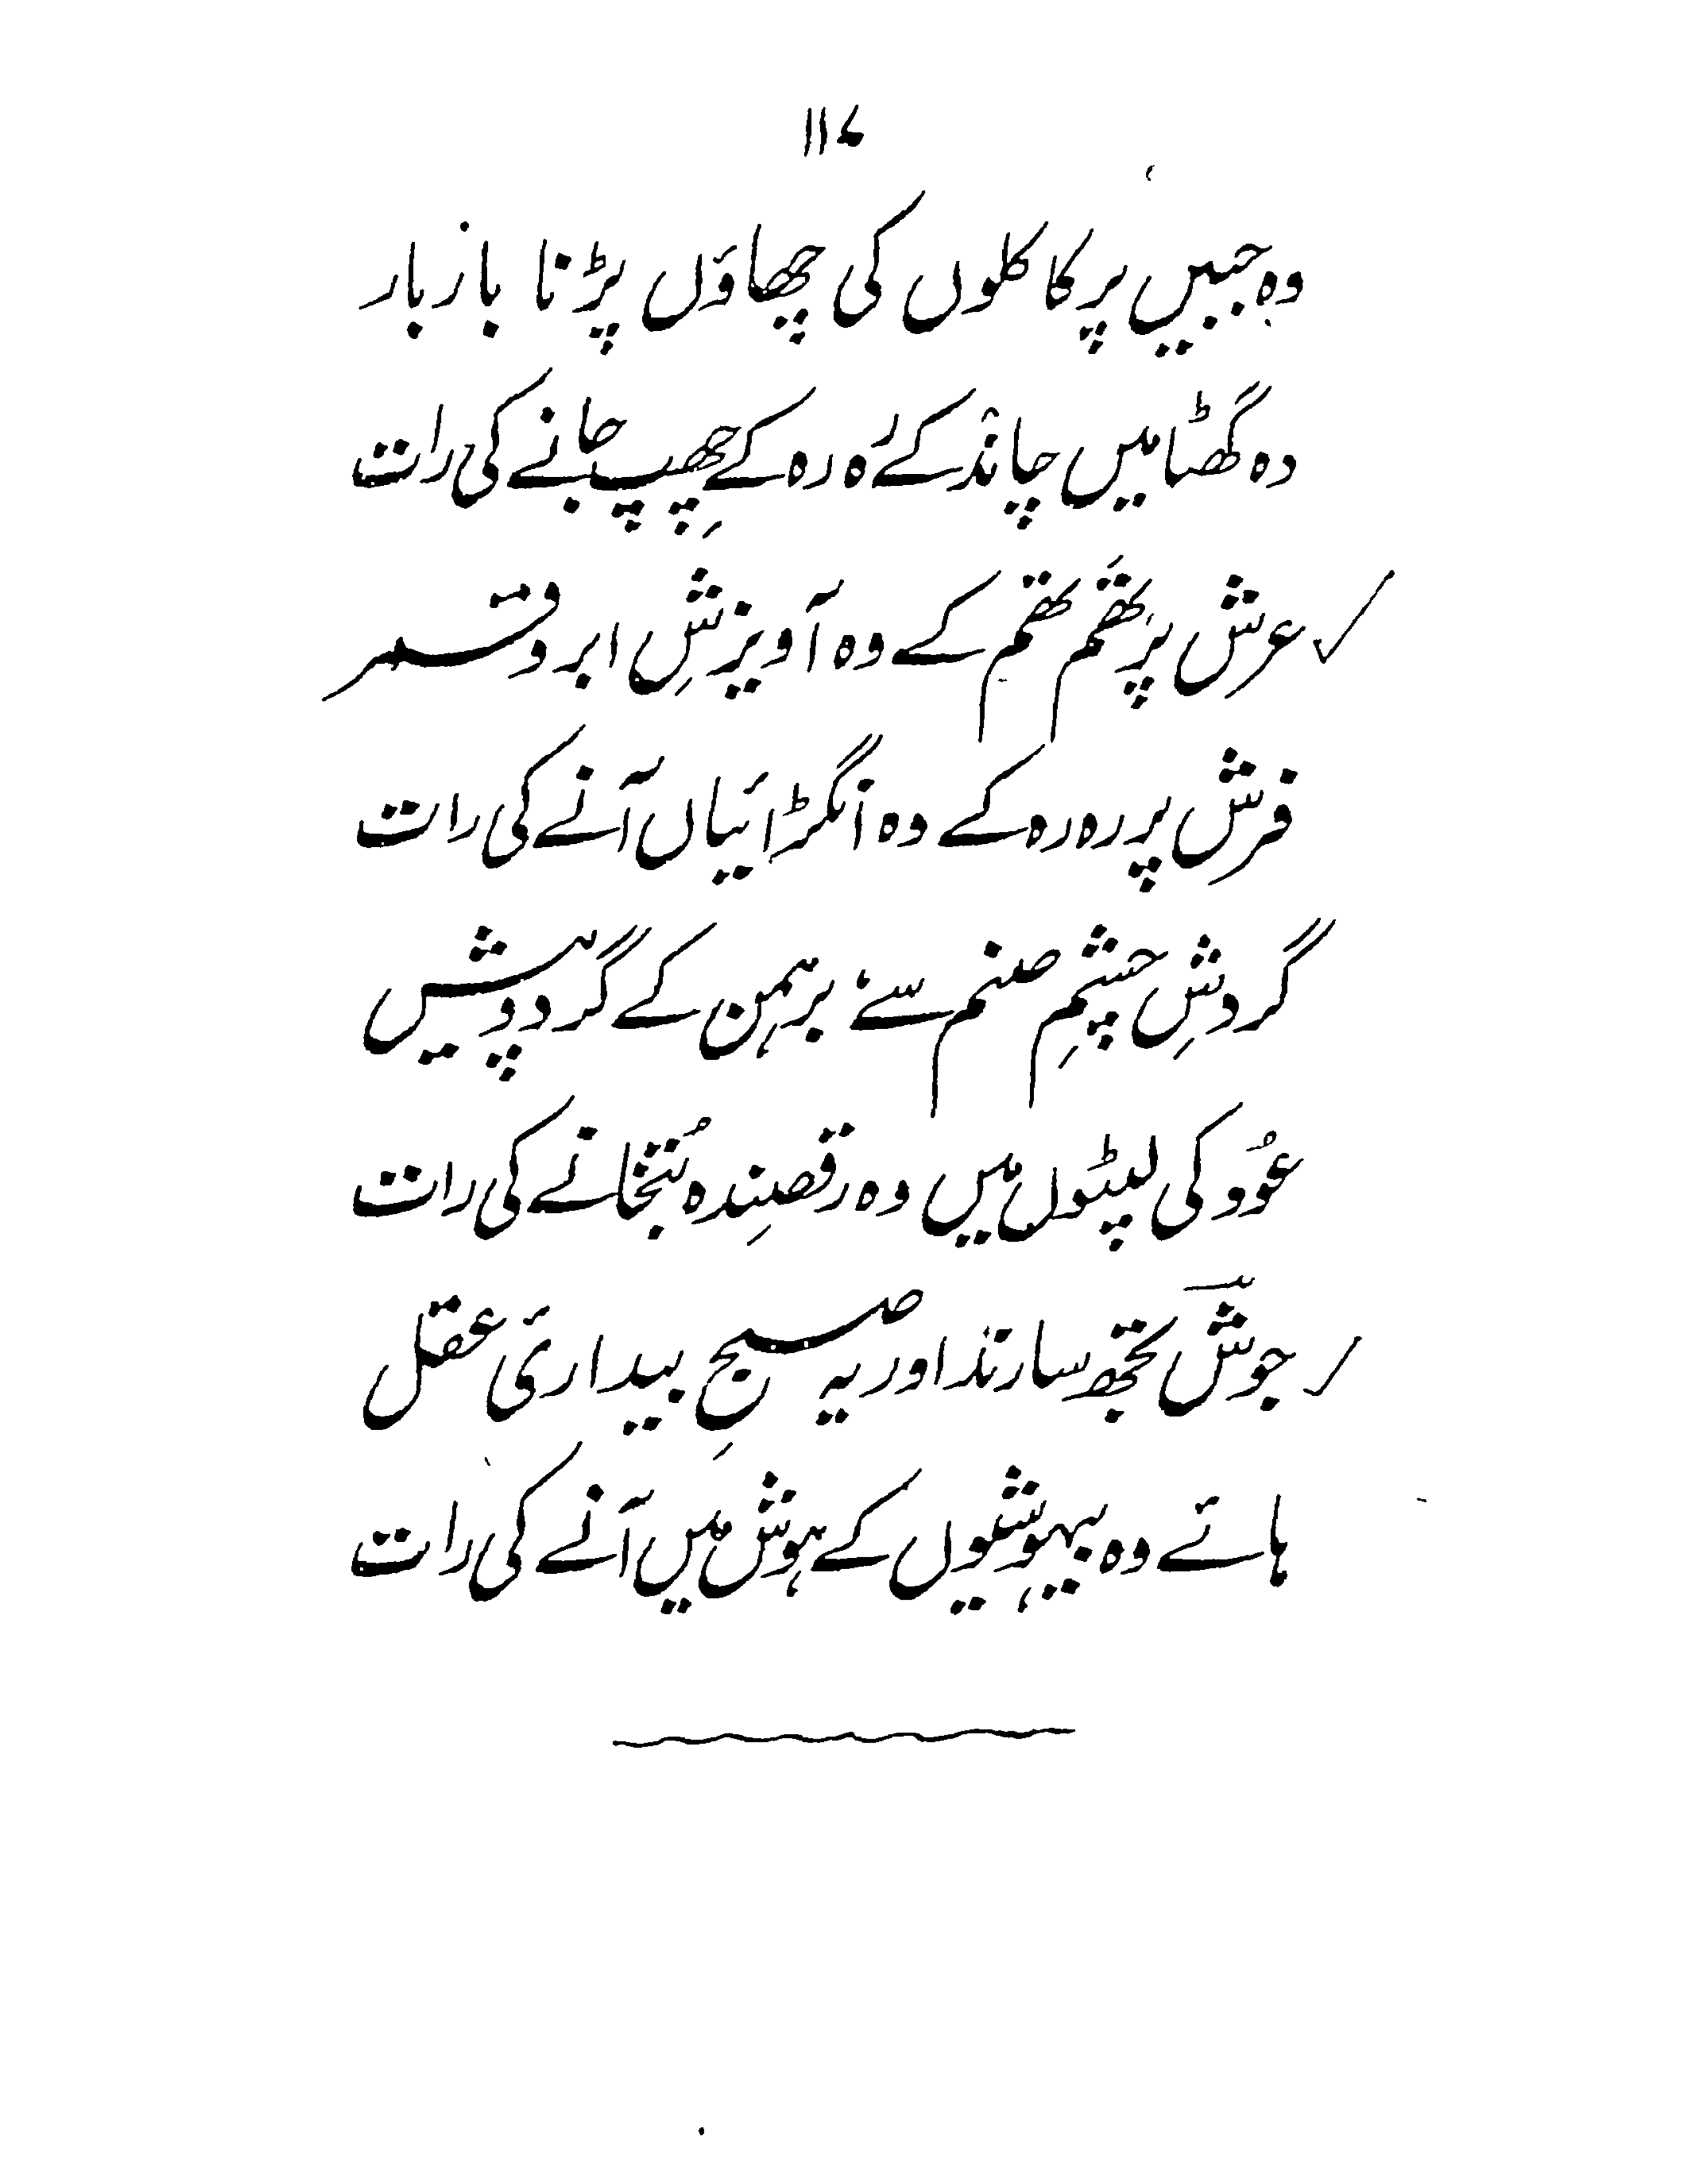 ۱۱۷
وہ جبیں پر کاکلوں کی چھاؤں پڑنا بار بار
وہ گھٹا میں چاند کے رُہ رہ کے چھِپ جانے کی رات
عرش پر تھَم تھم کے وہ آویزشِ ابر و قمر
فرش پر رہ رہ کے وہ انگڑائیاں آنے کی رات
گردشِ چشمِ صنم سے، برہمن کے گرد و پیش
عُود کی لپٹوں میں وہ رقصِندہ بُتخانے کی رات
جوشؔ تجھ سا رند اور یہ صبحِ بیداریٔ عقل
ہائے وہ بیہوشیوں کے ہوش میں آنے کی رات